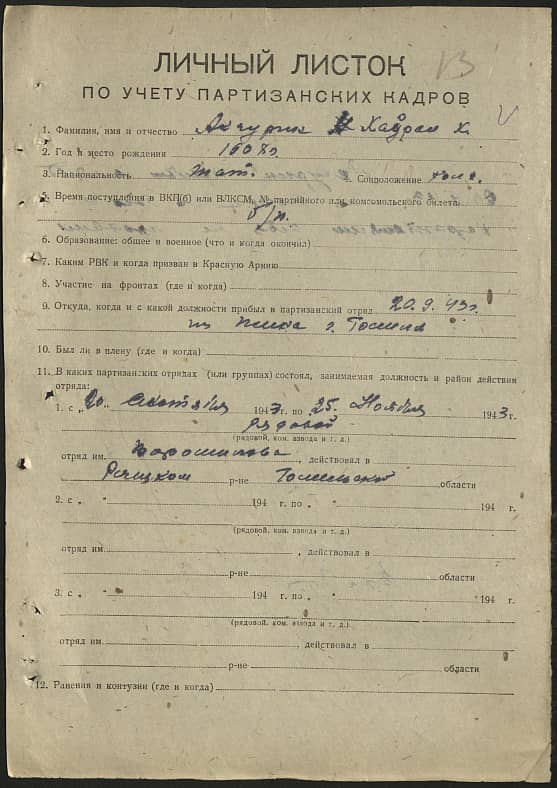 ЛИЧНЫЙ ЛИСТОК
ПО УЧЕТУ ПАРТИЗАНСКИХ КАДРОВ
1. Фамилия, имя и отчество
2. Год и место рождения
3. Национальность тат. 4. Соцположение
5. Время поступления в ВКП(б) или ВЛКСМ, № партийного или комсомольского билета:
б/п.
6. Образование: общее и военное (что и когда окончил)
7. Каким РВК и когда призван в Красную Армию
8. Участие на фронтах (где и когда)
9. Откуда, когда и с какой должности прибыл в партизанский отряд 20.9.43г.
из плена г. Гомеля
10. Был ли в плену (где и когда)
11. В каких партизанских отрядах (или группах) состоял, занимаемая должность и район действия
отряда:
1. с „20" 1943 г. по „25. Ноября 1943 г.
рядовой
(рядовой, ком. взвода и т. д.)
отряд им. Ворошилова, действовал в
Речицком р-не Гомельской области
2. с „ " 194 г. по „ " 194 г.
(рядовой, ком. взвода и т. д.)
отряд им. , действовал в
р-не области
3. с „ " 194 г. по „ " 194 г.
(рядовой, ком. взвода и т. д.)
отряд им. , действовал в
р-не области
12. Ранения и контузии (где и когда)